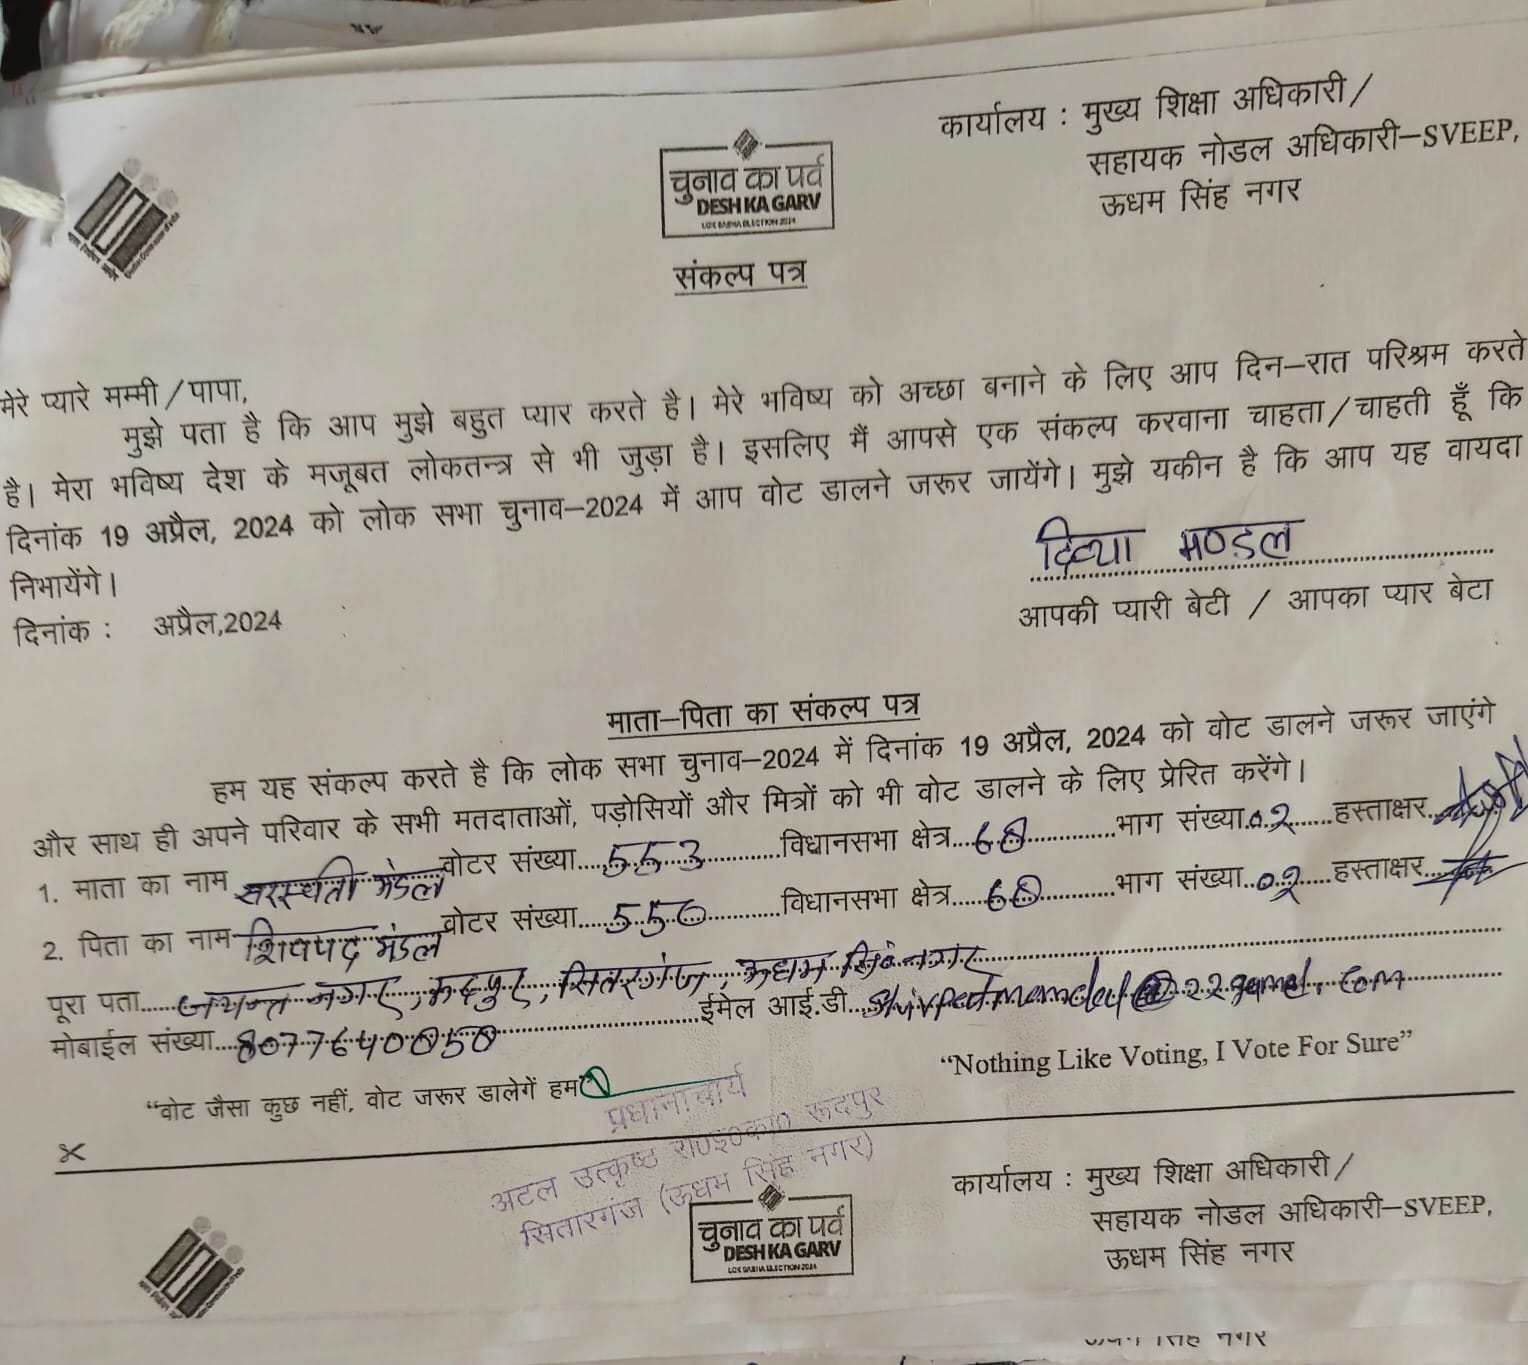 कार्यालय : मुख्य शिक्षा अधिकारी/
सहायक नोडल अधिकारी–SVEEP,
ऊधम सिंह नगर
चुनाव का पर्व
DESH KA GARV
LOK SABHA ELECTION 2024
संकल्प पत्र
मेरे प्यारे मम्मी/पापा,
मुझे पता है कि आप मुझे बहुत प्यार करते है। मेरे भविष्य को अच्छा बनाने के लिए आप दिन–रात परिश्रम करते
है। मेरा भविष्य देश के मजूबत लोकतन्त्र से भी जुड़ा है। इसलिए मैं आपसे एक संकल्प करवाना चाहता/चाहती हूँ कि
दिनांक 19 अप्रैल, 2024 को लोक सभा चुनाव–2024 में आप वोट डालने जरूर जायेंगे। मुझे यकीन है कि आप यह वायदा
निभायेंगे।
दिव्या मण्डल
दिनांक : अप्रैल,2024
आपकी प्यारी बेटी / आपका प्यार बेटा
माता–पिता का संकल्प पत्र
हम यह संकल्प करते है कि लोक सभा चुनाव–2024 में दिनांक 19 अप्रैल, 2024 को वोट डालने जरूर जाएंगे
और साथ ही अपने परिवार के सभी मतदाताओं, पड़ोसियों और मित्रों को भी वोट डालने के लिए प्रेरित करेंगे।
1. माता का नाम सरस्वती मंडल वोटर संख्या....553............विधानसभा क्षेत्र...68.............भाग संख्या.02.......हस्ताक्षर
2. पिता का नाम शिवपद मंडल वोटर संख्या....550............विधानसभा क्षेत्र.....68............भाग संख्या..02.....हस्ताक्षर
पूरा पता......जयन्त नगर, रूदपुर, सितारगंज, ऊधम सिंह नगर
मोबाईल संख्या....8077640050..............ईमेल आई.डी...
“वोट जैसा कुछ नहीं, वोट जरूर डालेगें हम”
“Nothing Like Voting, I Vote For Sure”
प्रधानाचार्य
अटल उत्कृष्ठ रा०इ०का० रूदपुर
सितारगंज (ऊधम सिंह नगर)
कार्यालय : मुख्य शिक्षा अधिकारी/
सहायक नोडल अधिकारी–SVEEP,
ऊधम सिंह नगर
चुनाव का पर्व
DESH KA GARV
LOK SABHA ELECTION 2024